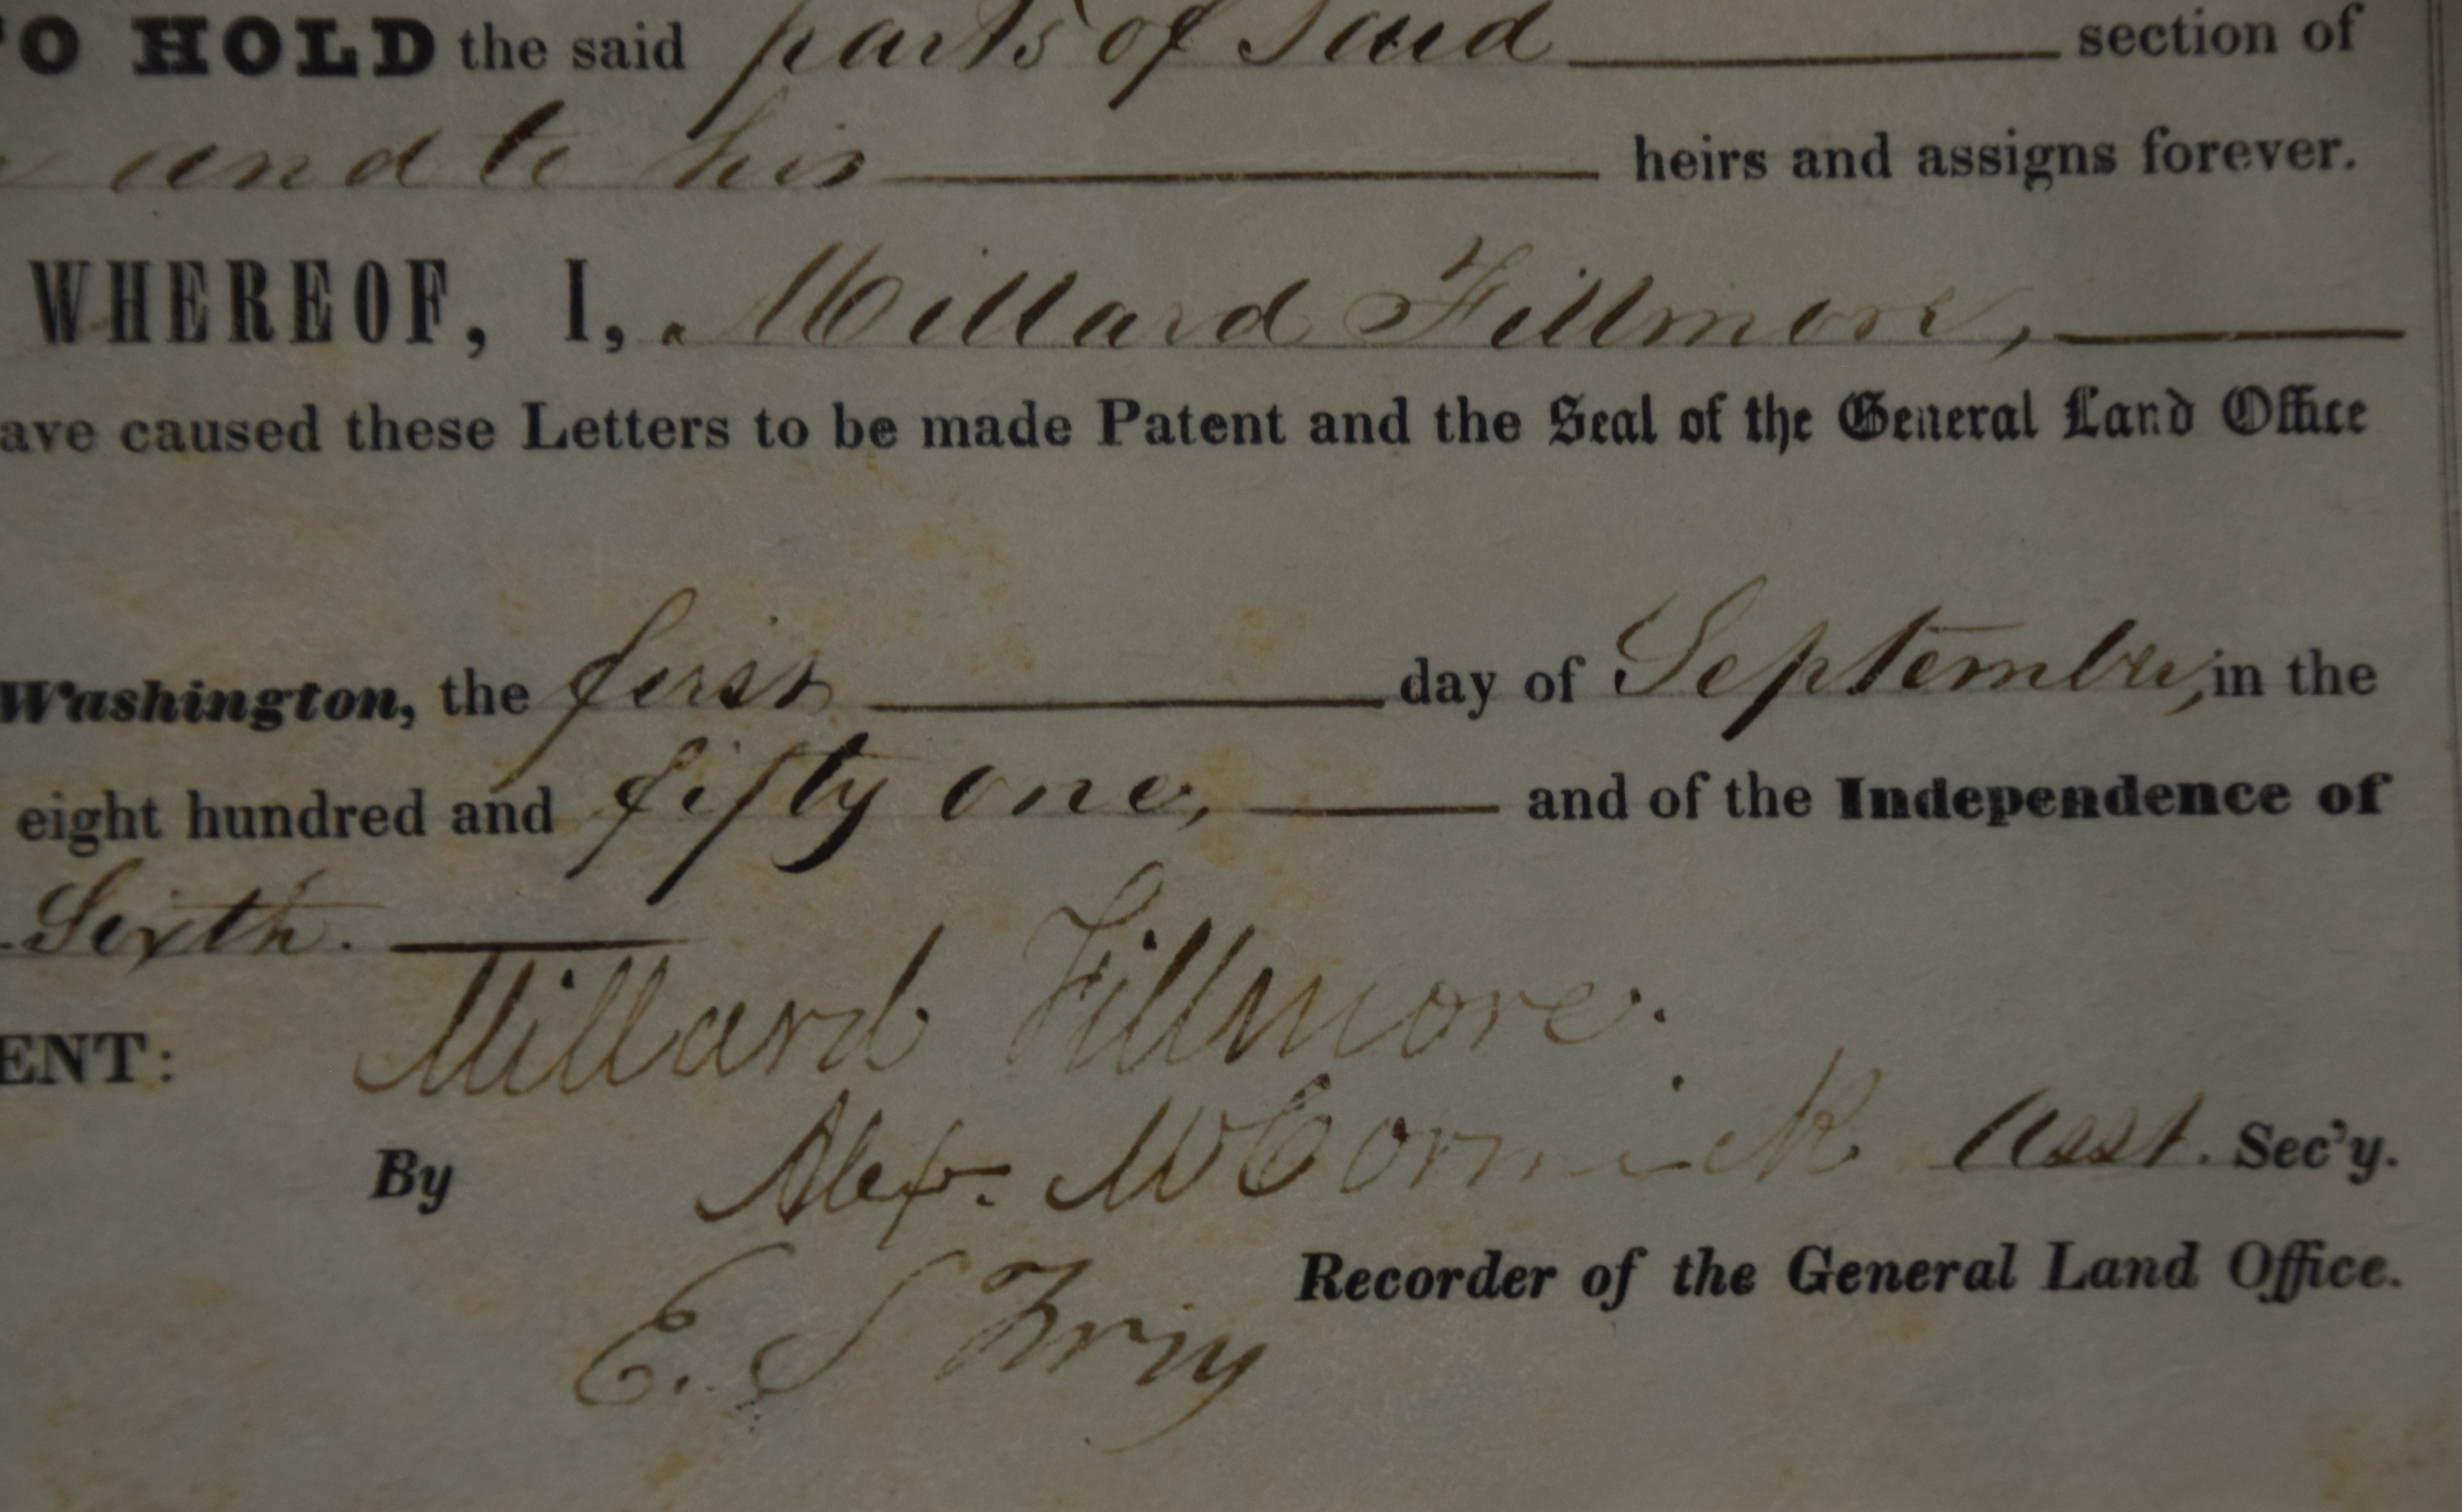 TO HOLD the said parts of Said section of
and to his heirs and assigns forever.
WHEREOF, I, Millard Fillmore,
ave caused these Letters to be made Patent and the Seal of the General Land Office
Washington, the first day of September, in the
eight hundred and fifty one, and of the Independence of
Sixth.
Millard Fillmore.
ENT:
By Alexr. McCormick Asst. Sec'y.
Recorder of the General Land Office.
E. S Terry